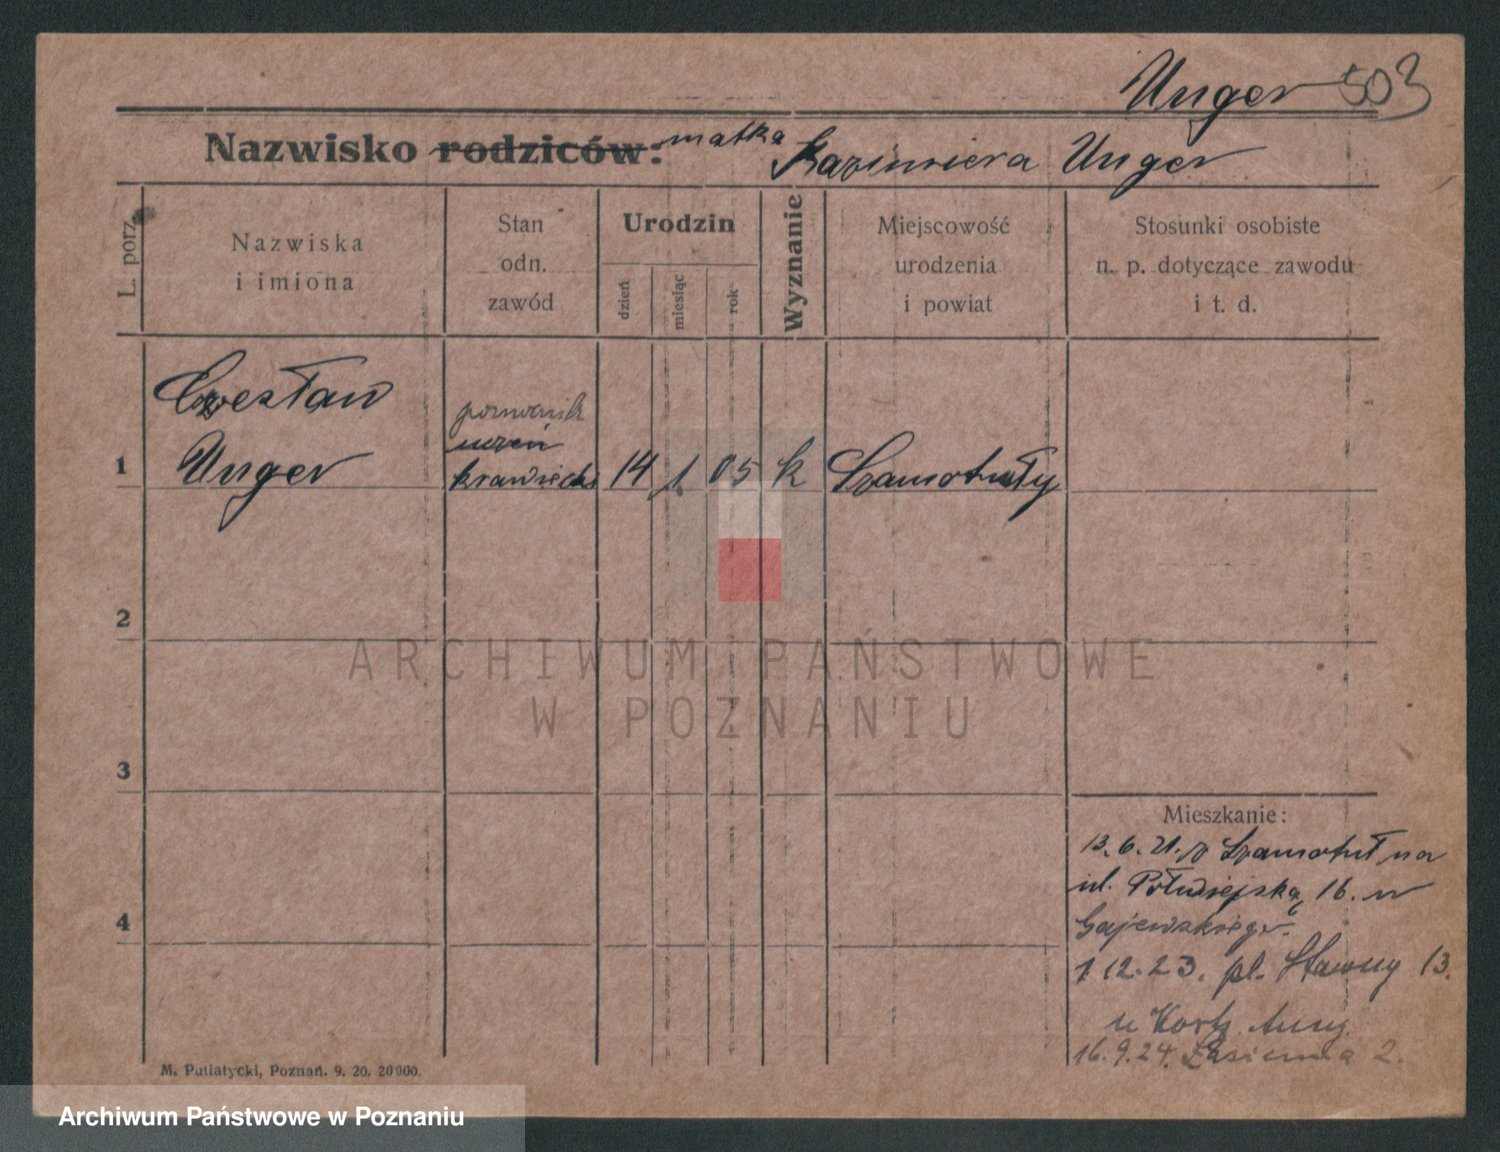 Unger 503
Nazwisko rodziców: matka Kazimiera Unger
L. porz.
Nazwiska
i imiona
Stan
odn.
zawód
Urodzin
dzień
miesiąc
rok
Wyznanie
Miejscowość
urodzenia
i powiat
Stosunki osobiste
n. p. dotyczące zawodu
i t. d.
1
Czesław
Unger
pomocnik
uczeń
krawiecki
14
1
05
k
Szamotuły
2
3
4
Mieszkanie:
13.6.21. z Szamotuł na
ul. Półwiejska 16. u
Gajewskiego.
1 12.23. pl. Stawny 13.
u Kortz Anny
16.9.24. 2.
M. Putiatycki, Poznań. 9. 20. 20000.
ARCHIWUM PAŃSTWOWE
W POZNANIU
Archiwum Państwowe w Poznaniu